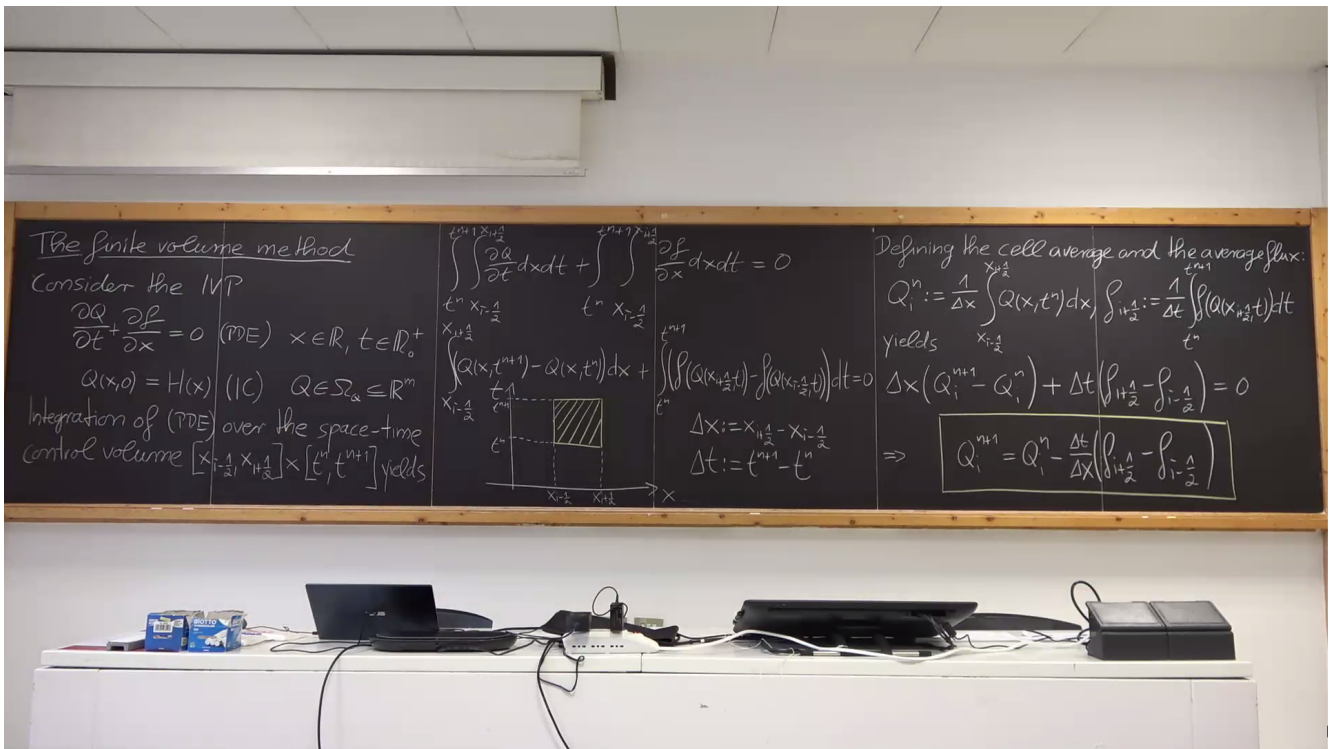 The finite volume method
Consider the IVP
∂Q/∂t + ∂f/∂x = 0 (PDE) x ∈ ℝ, t ∈ ℝ₀⁺
Q(x,0) = H(x) (IC) Q ∈ Ω_Q ⊆ ℝ^m
Integration of (PDE) over the space-time
control volume [x_{i-1/2}, x_{i+1/2}] × [t^n, t^{n+1}] yields
∫_{t^n}^{t^{n+1}} ∫_{x_{i-1/2}}^{x_{i+1/2}} ∂Q/∂t dxdt + ∫_{t^n}^{t^{n+1}} ∫_{x_{i-1/2}}^{x_{i+1/2}} ∂f/∂x dxdt = 0
∫_{x_{i-1/2}}^{x_{i+1/2}} (Q(x,t^{n+1}) - Q(x,t^n)) dx + ∫_{t^n}^{t^{n+1}} (f(Q(x_{i+1/2},t)) - f(Q(x_{i-1/2},t))) dt = 0
t
t^{n+1}
t^n
x_{i-1/2} x_{i+1/2} x
Δx := x_{i+1/2} - x_{i-1/2}
Δt := t^{n+1} - t^n
Defining the cell average and the average flux:
Q_i^n := 1/Δx ∫_{x_{i-1/2}}^{x_{i+1/2}} Q(x,t^n) dx, f_{i+1/2} := 1/Δt ∫_{t^n}^{t^{n+1}} f(Q(x_{i+1/2},t)) dt
yields
Δx (Q_i^{n+1} - Q_i^n) + Δt (f_{i+1/2} - f_{i-1/2}) = 0
⇒ Q_i^{n+1} = Q_i^n - Δt/Δx (f_{i+1/2} - f_{i-1/2})
GIOTTO